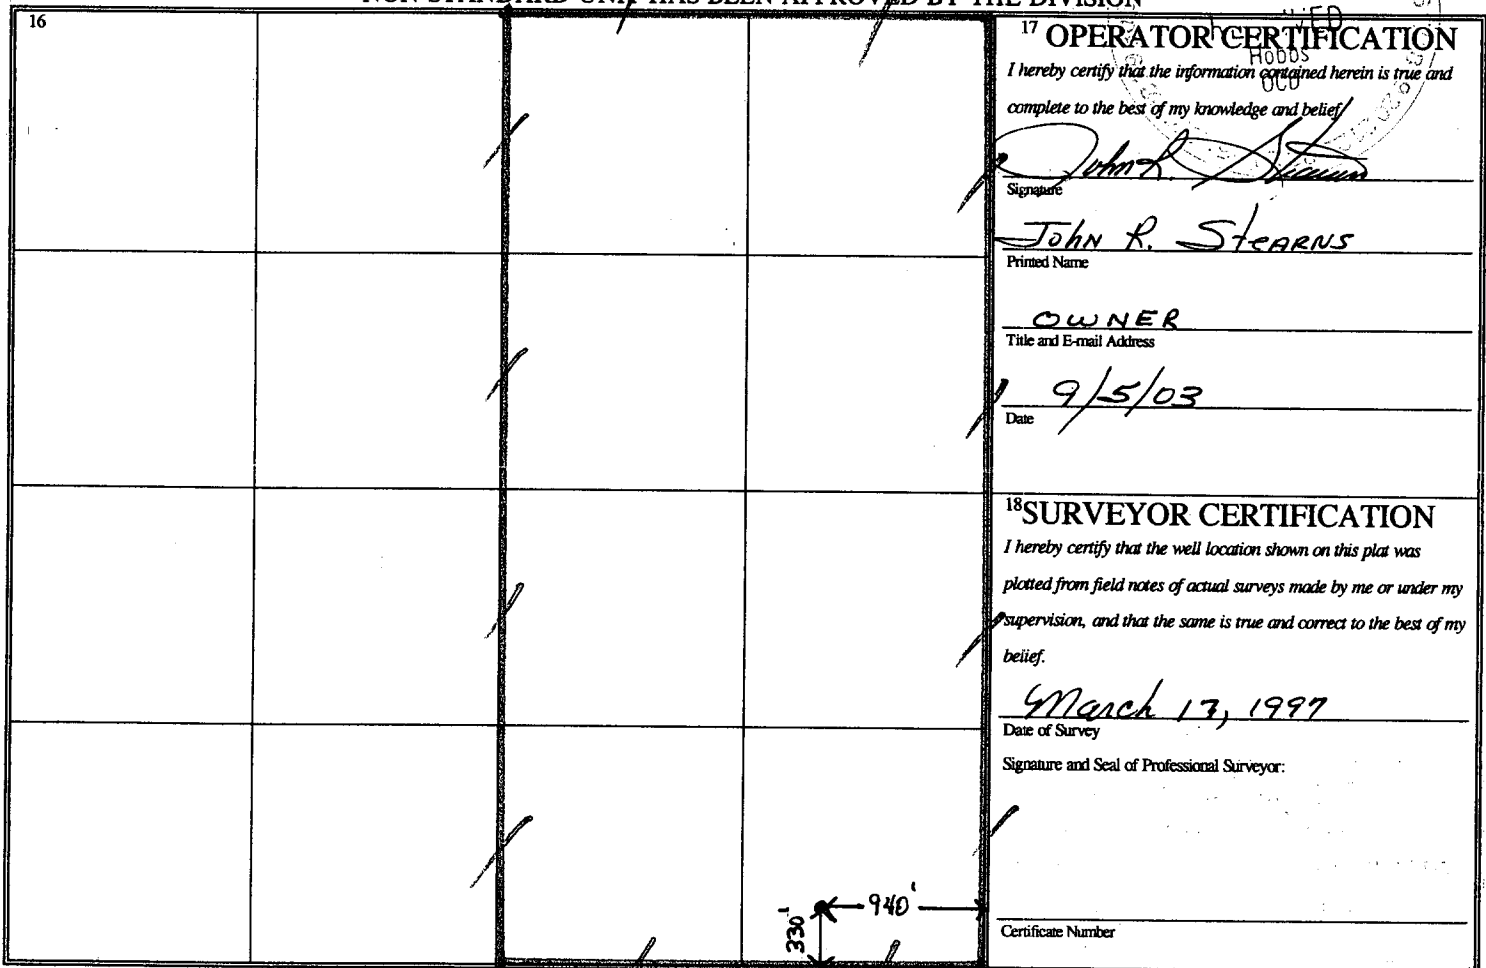 NON-STANDARD UNIT HAS BEEN APPROVED BY THE DIVISION
16
17 OPERATOR CERTIFICATION
I hereby certify that the information contained herein is true and
complete to the best of my knowledge and belief
Hobbs
OCD
John R. Stearns
Signature
John R. Stearns
Printed Name
OWNER
Title and E-mail Address
9/5/03
Date
18 SURVEYOR CERTIFICATION
I hereby certify that the well location shown on this plat was
plotted from field notes of actual surveys made by me or under my
supervision, and that the same is true and correct to the best of my
belief.
March 13, 1997
Date of Survey
Signature and Seal of Professional Surveyor:
940'
330'
Certificate Number